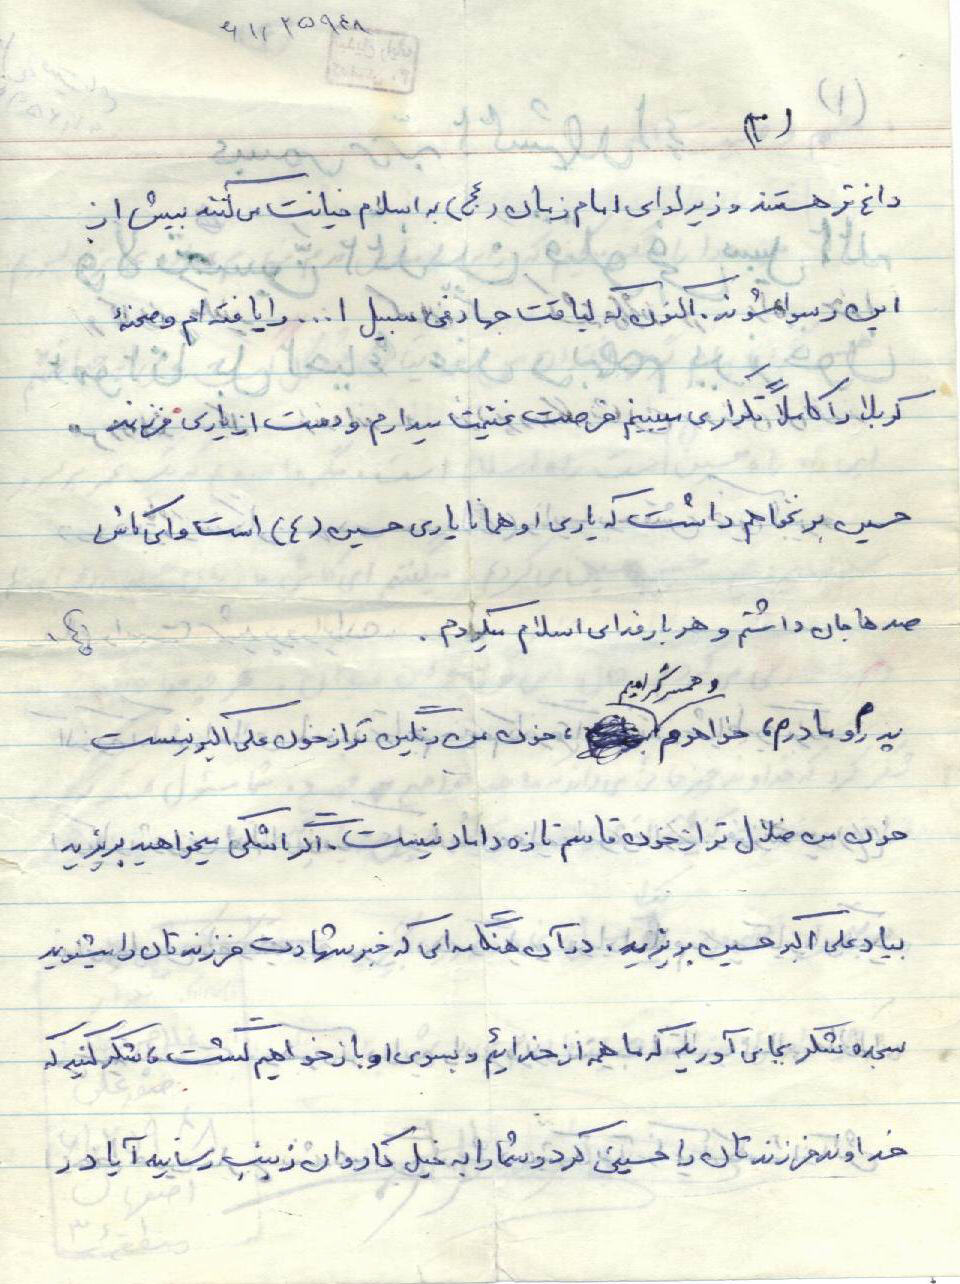 (۳)
داغ تر هستند و زیر لوای امام زمان (عج) به اسلام خیانت می کنند بیش از
این رسوا شوند. اکنون که لیاقت جهاد فی سبیل ا... را یافته ام و صحنهٔ
کربلا را کاملاً تکراری میبینم فرصت غنیمت میدارم و دست از یاری فرزند
حسین بر نخواهم داشت که یاری او همانا یاری حسین (ع) است و ای کاش
صدها جان داشتم و هر بار فدای اسلام میکردم.
و همسر گرامیم
پدرم و مادرم، خواهرم، خون من رنگین تر از خون علی اکبر نیست
خون من حلال تر از خون قاسم تازه داماد نیست. اگر اشکی میخواهید بریزید
بیاد علی اکبر حسین بریزید. در آن هنگامه ای که خبر شهادت فرزندتان را میشنوید
سجده شکر بجای آورید که ما همه از خدائیم و بسوی او باز خواهیم گشت، شکر کنید که
خداوند فرزندتان را حسینی کرد و شما را به خیل کاروان زینب رسانید آیا در